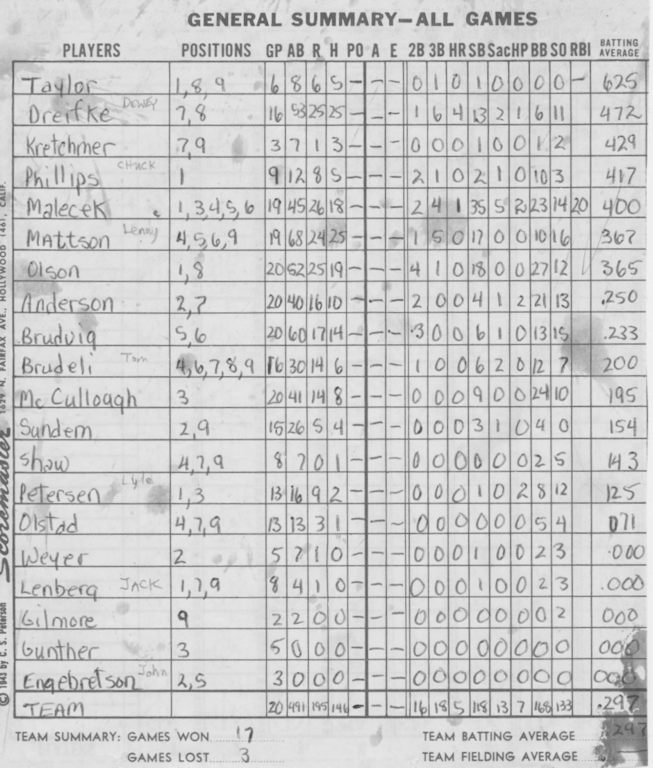 GENERAL SUMMARY—ALL GAMES
PLAYERS POSITIONS GP AB R H PO A E 2B 3B HR SB Sac HP BB SO RBI BATTING AVERAGE
Taylor 1,8,9 6 8 6 5 - - - 0 1 0 1 0 0 0 0 - 625
Dreifke Dewey 7,8 16 53 25 25 - - - 1 6 4 13 2 1 6 11 472
Kretchmer 7,9 3 7 1 3 - - - 0 0 0 1 0 0 1 2 429
Phillips Chuck 1 9 12 8 5 - - - 2 1 0 2 1 0 10 3 417
Malecek 1,3,4,5,6 19 45 26 18 - - - 2 4 1 35 5 2 23 14 20 400
Mattson Lenny 4,5,6,9 19 68 24 25 - - - 1 5 0 17 0 0 10 16 367
Olson 1,8 20 52 25 19 - - - 4 1 0 18 0 0 27 12 365
Anderson 2,7 20 40 16 10 - - - 2 0 0 4 1 2 21 13 .250
Brudvig 5,6 20 60 17 14 - - - 3 0 0 6 1 0 13 15 .233
Brudeli Tom 4,6,7,8,9 16 30 14 6 - - - 1 0 0 6 2 0 12 7 200
McCullough 3 20 41 14 8 - - - 0 0 0 9 0 0 24 10 195
Sundem 2,9 15 26 5 4 - - - 0 0 0 3 1 0 4 0 154
Shaw 4,7,9 8 7 0 1 - - - 0 0 0 0 0 0 2 5 143
Petersen Lyle 1,3 13 16 9 2 - - - 0 0 0 1 0 2 8 12 125
Olstad 4,7,9 13 13 3 1 - - - 0 0 0 0 0 0 5 4 071
Weyer 2 5 7 1 0 - - - 0 0 0 1 0 0 2 3 .000
Lenberg Jack 1,7,9 8 4 1 0 - - - 0 0 0 1 0 0 2 3 .000
Gilmore 9 2 2 0 0 - - - 0 0 0 0 0 0 0 2 000
Gunther 3 5 0 0 0 - - - 0 0 0 0 0 0 0 0 000
Engebretson John 2,5 3 0 0 0 - - - 0 0 0 0 0 0 0 0 000
TEAM 20 491 195 146 - - - 16 18 5 118 13 7 168 133 .297
TEAM SUMMARY: GAMES WON 17 TEAM BATTING AVERAGE 297
GAMES LOST 3 TEAM FIELDING AVERAGE
© 1943 by C. S. Peterson Scoremaster 1629 N. FAIRFAX AVE., HOLLYWOOD 1461, CALIF.